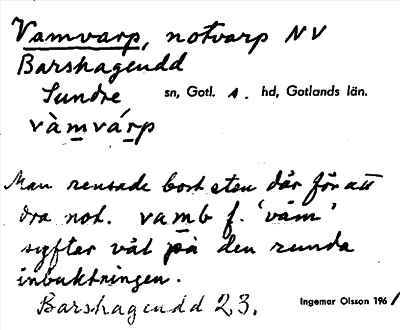 Vamvarp, notvarp NV
Barshageudd
Sundre sn, Gotl. s. hd, Gotlands län.
vàmvárp
Man rensade bort sten där för att
dra not. vamb f. 'våm'
syftar väl på den runda
inbuktningen.
Barshageudd 23.
Ingemar Olsson 1961